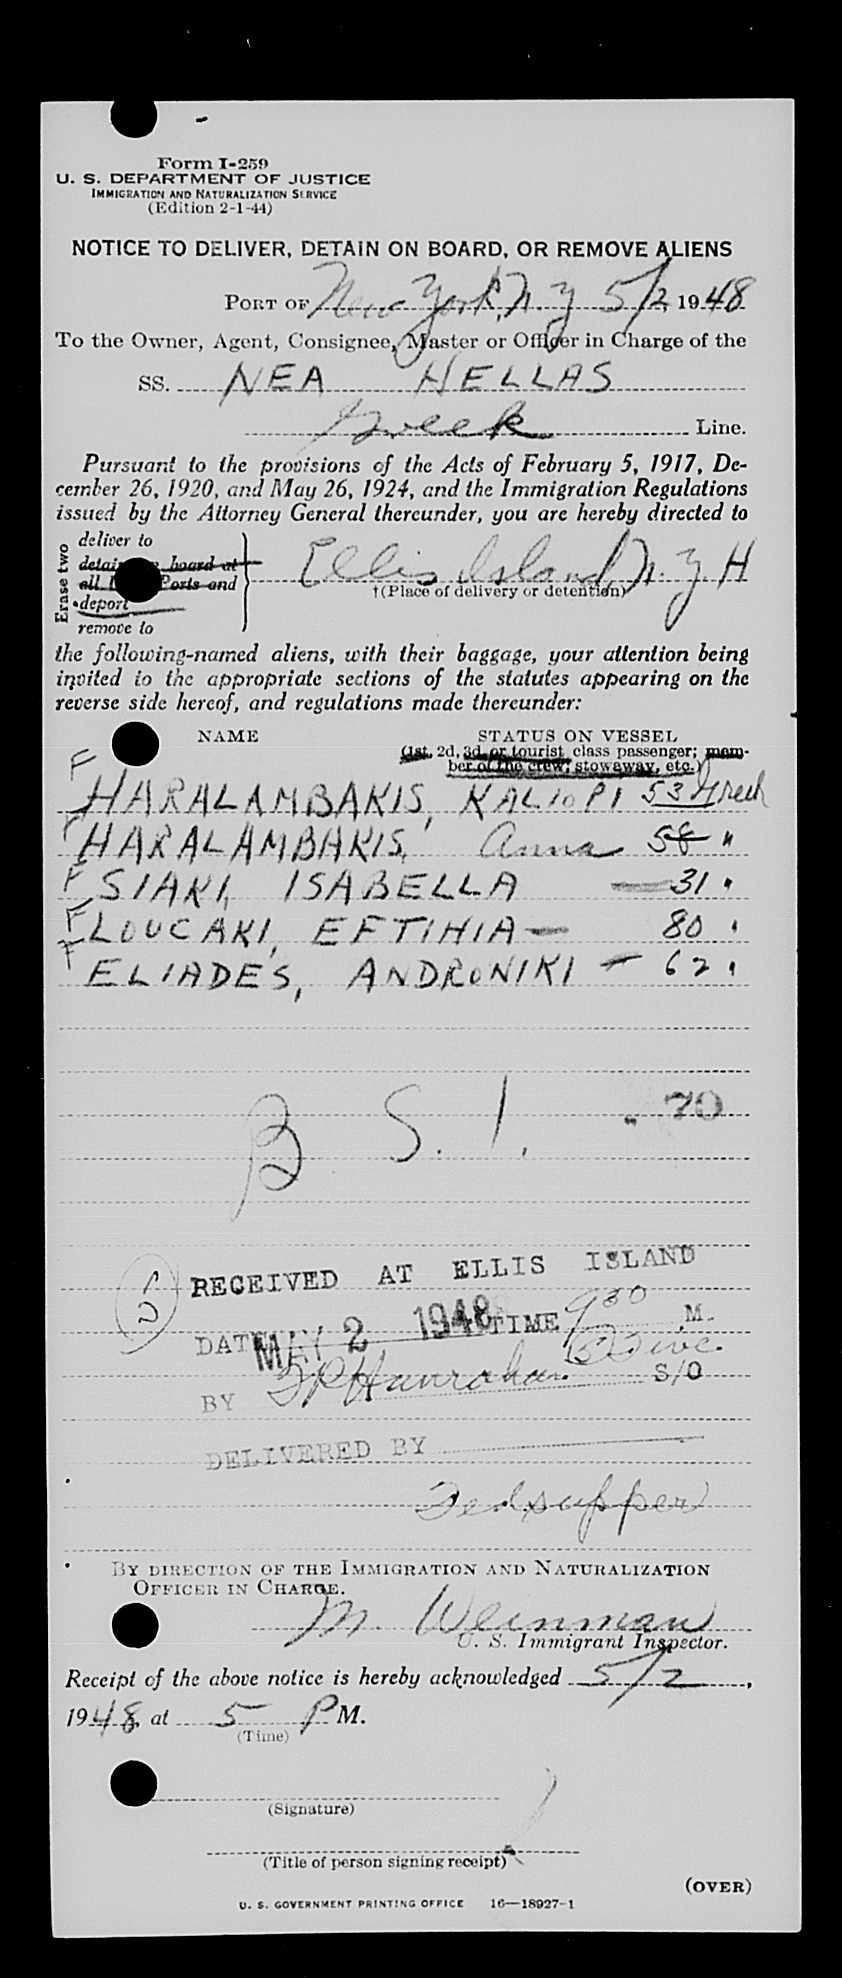 Form I-259
U. S. DEPARTMENT OF JUSTICE
IMMIGRATION AND NATURALIZATION SERVICE
(Edition 2-1-44)
NOTICE TO DELIVER, DETAIN ON BOARD, OR REMOVE ALIENS
PORT OF New York, N. Y 5/2 1948
To the Owner, Agent, Consignee, Master or Officer in Charge of the
SS. NEA HELLAS
Greek Line.
Pursuant to the provisions of the Acts of February 5, 1917, De-
cember 26, 1920, and May 26, 1924, and the Immigration Regulations
issued by the Attorney General thereunder, you are hereby directed to
Erase two
deliver to
detain on board at
all Ports and
deport
remove to
Ellis Island, N. Y. H
†(Place of delivery or detention)
the following-named aliens, with their baggage, your attention being
invited to the appropriate sections of the statutes appearing on the
reverse side hereof, and regulations made thereunder:
NAME STATUS ON VESSEL
(1st, 2d, 3d, or tourist class passenger; mem-
ber of the crew; stowaway, etc.)
F HARALAMBAKIS, KALIOPI 53 Greek
HARALAMBAKIS, Anna 58 "
F SIAKI, ISABELLA — 31 "
F LOUCAKI, EFTIHIA — 80 "
F ELIADES, ANDRONIKI — 62 "
B. S. I. 70
RECEIVED AT ELLIS ISLAND
DATE MAY 2 1948 TIME 930 M.
BY Hanrahan S/O
DELIVERED BY
Fed supper
BY DIRECTION OF THE IMMIGRATION AND NATURALIZATION
OFFICER IN CHARGE.
M. Weinman
U. S. Immigrant Inspector.
Receipt of the above notice is hereby acknowledged 5/2,
1948, at 5 PM.
(Time)
(Signature)
(Title of person signing receipt)
(OVER)
U. S. GOVERNMENT PRINTING OFFICE 16—18927-1